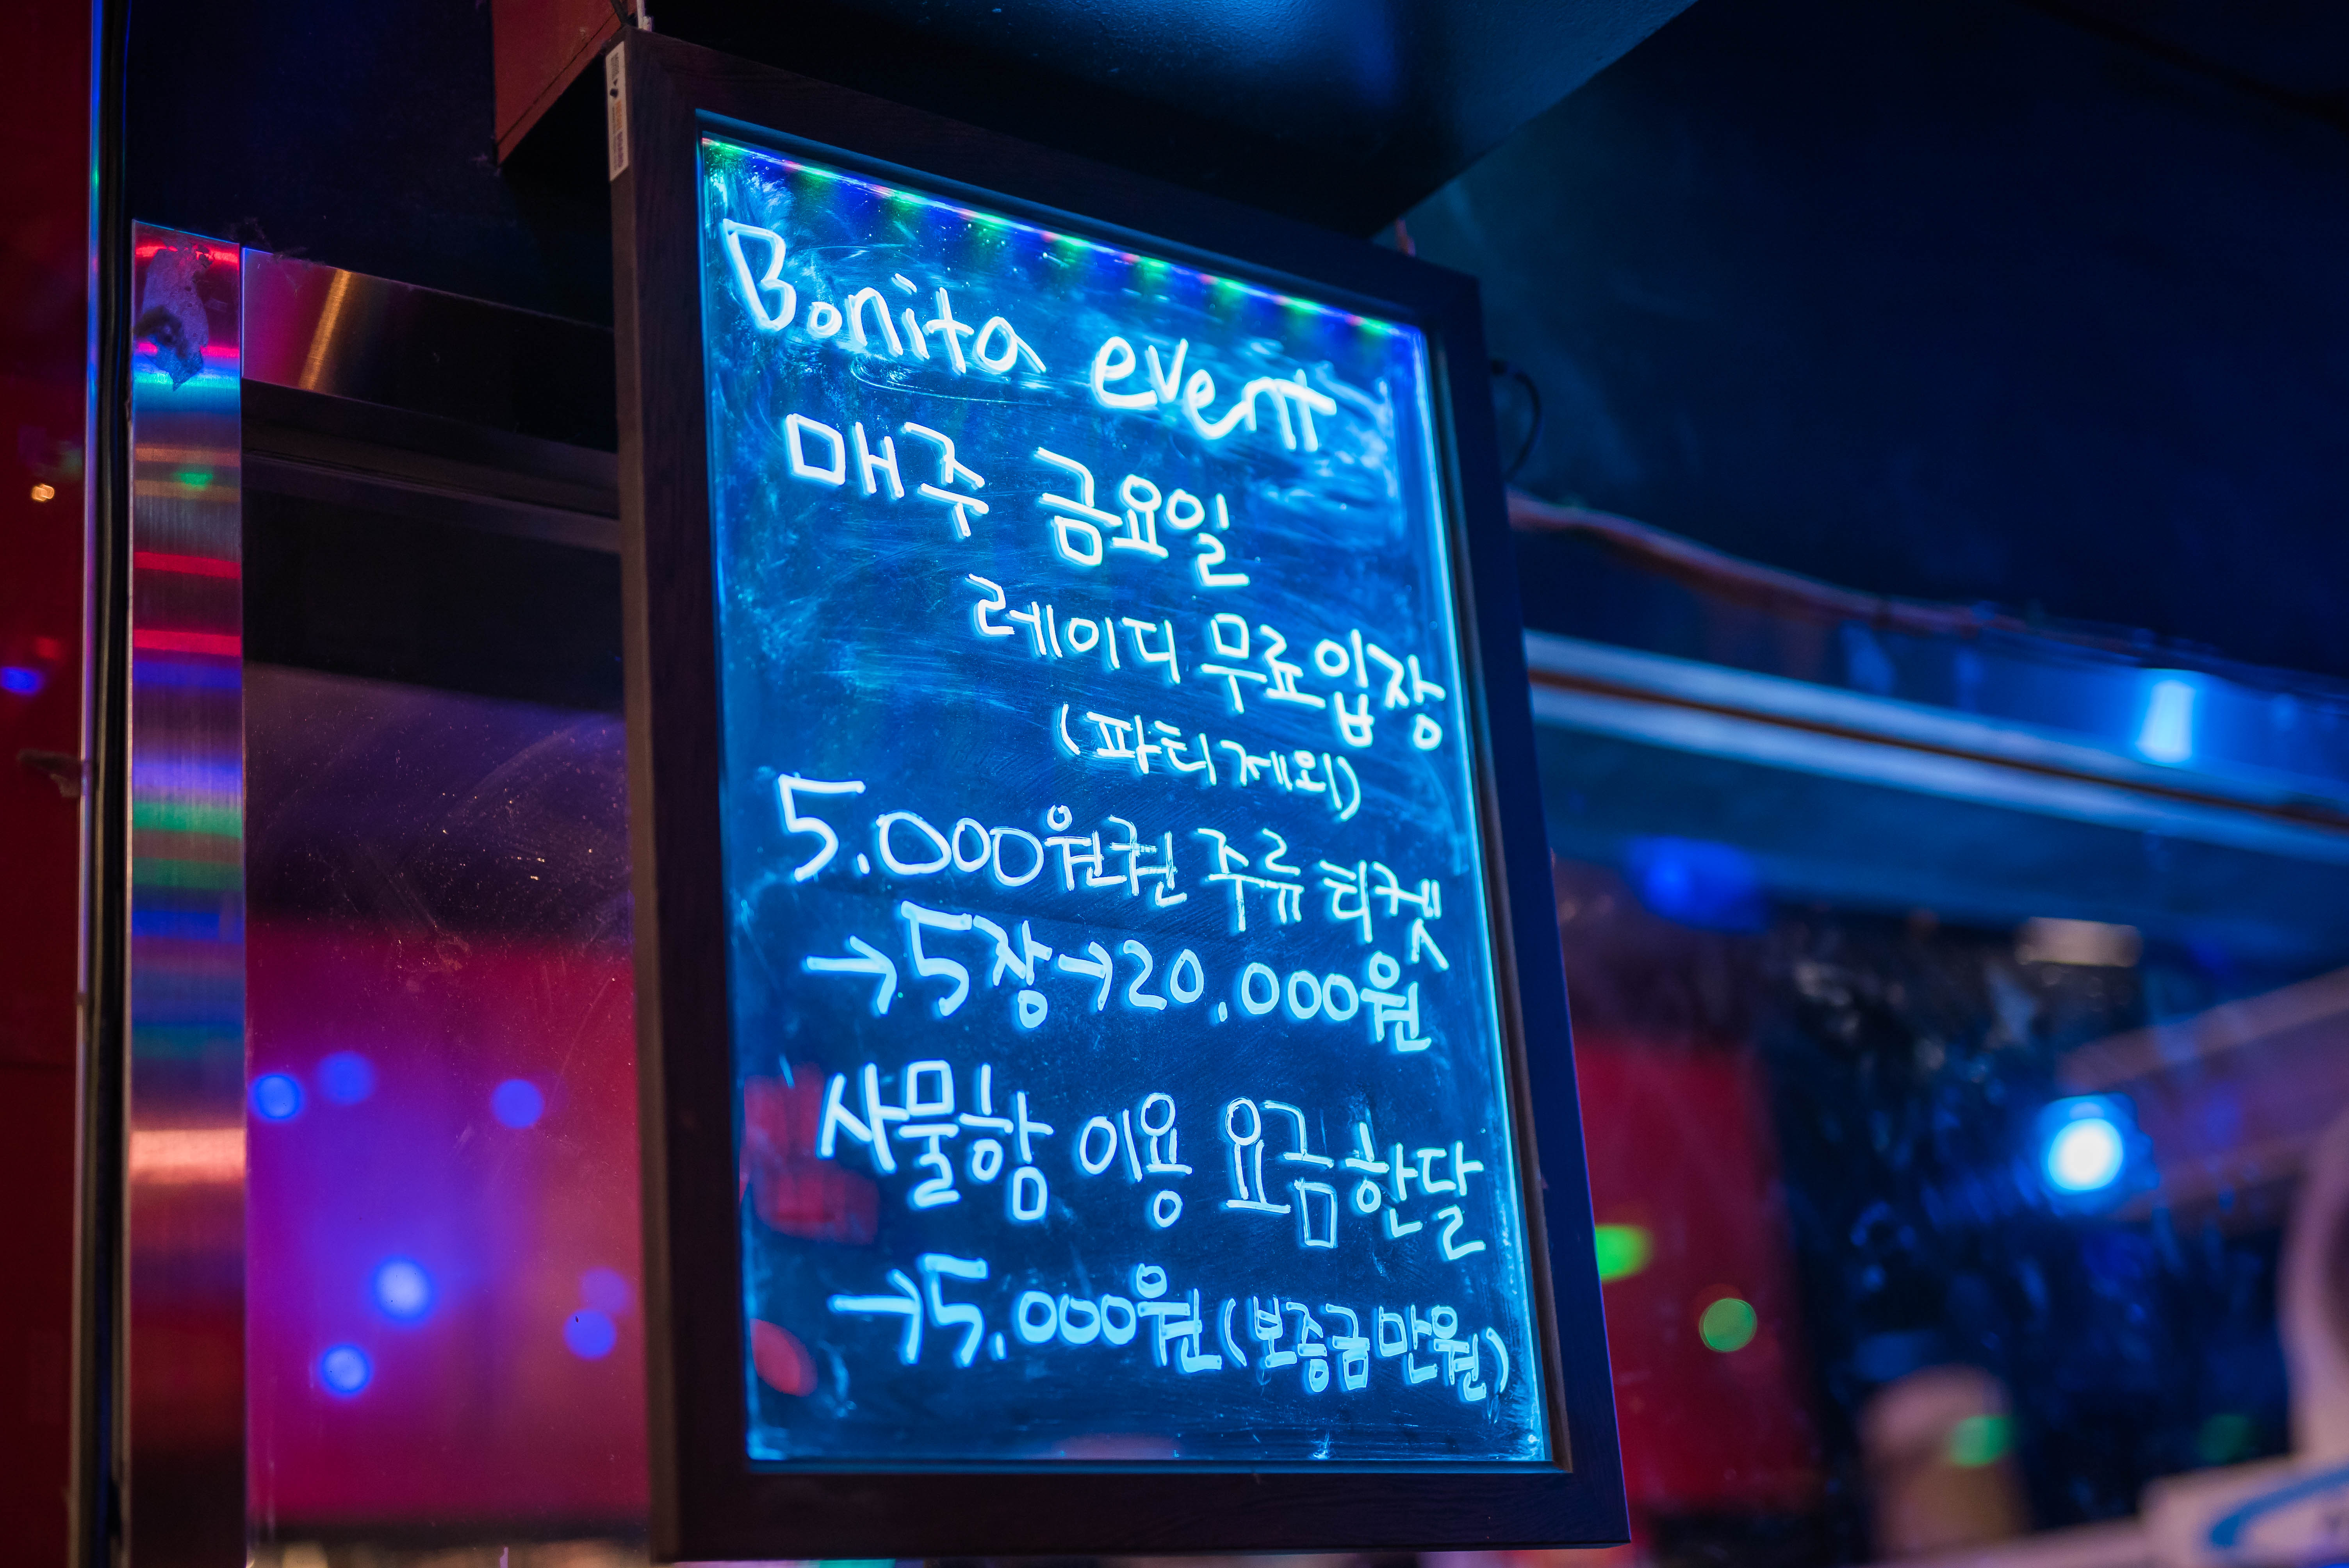 Bonita event
매주 금요일
레이디 무료입장
(파티제외)
5.000원권 주류티켓
→5장→20,000원
사물함 이용 요금한달
→5,000원(보증금만원)